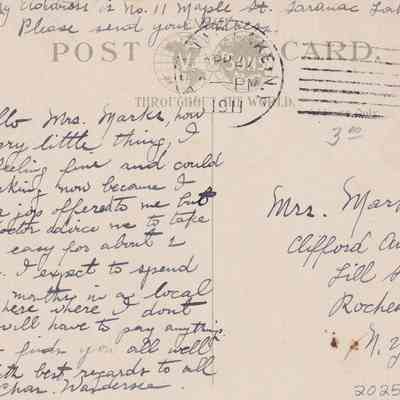 Address is No. 11 Maple St. Saranac
Please send your Address.
POST CARD.
THROUGHOUT THE WORLD.
PM
1911
3 00
Mrs. Marks, how
little thing, I
feeling fine and could
now because I
job offered to me but
advice me to take
easy for about 2
I expect to spend
months in a local
here where I dont
will have to pay anything.
finds you all well
best regards to all
Chas. Wandersee.
Mrs.
Clifford
Roche
N. Y
2025